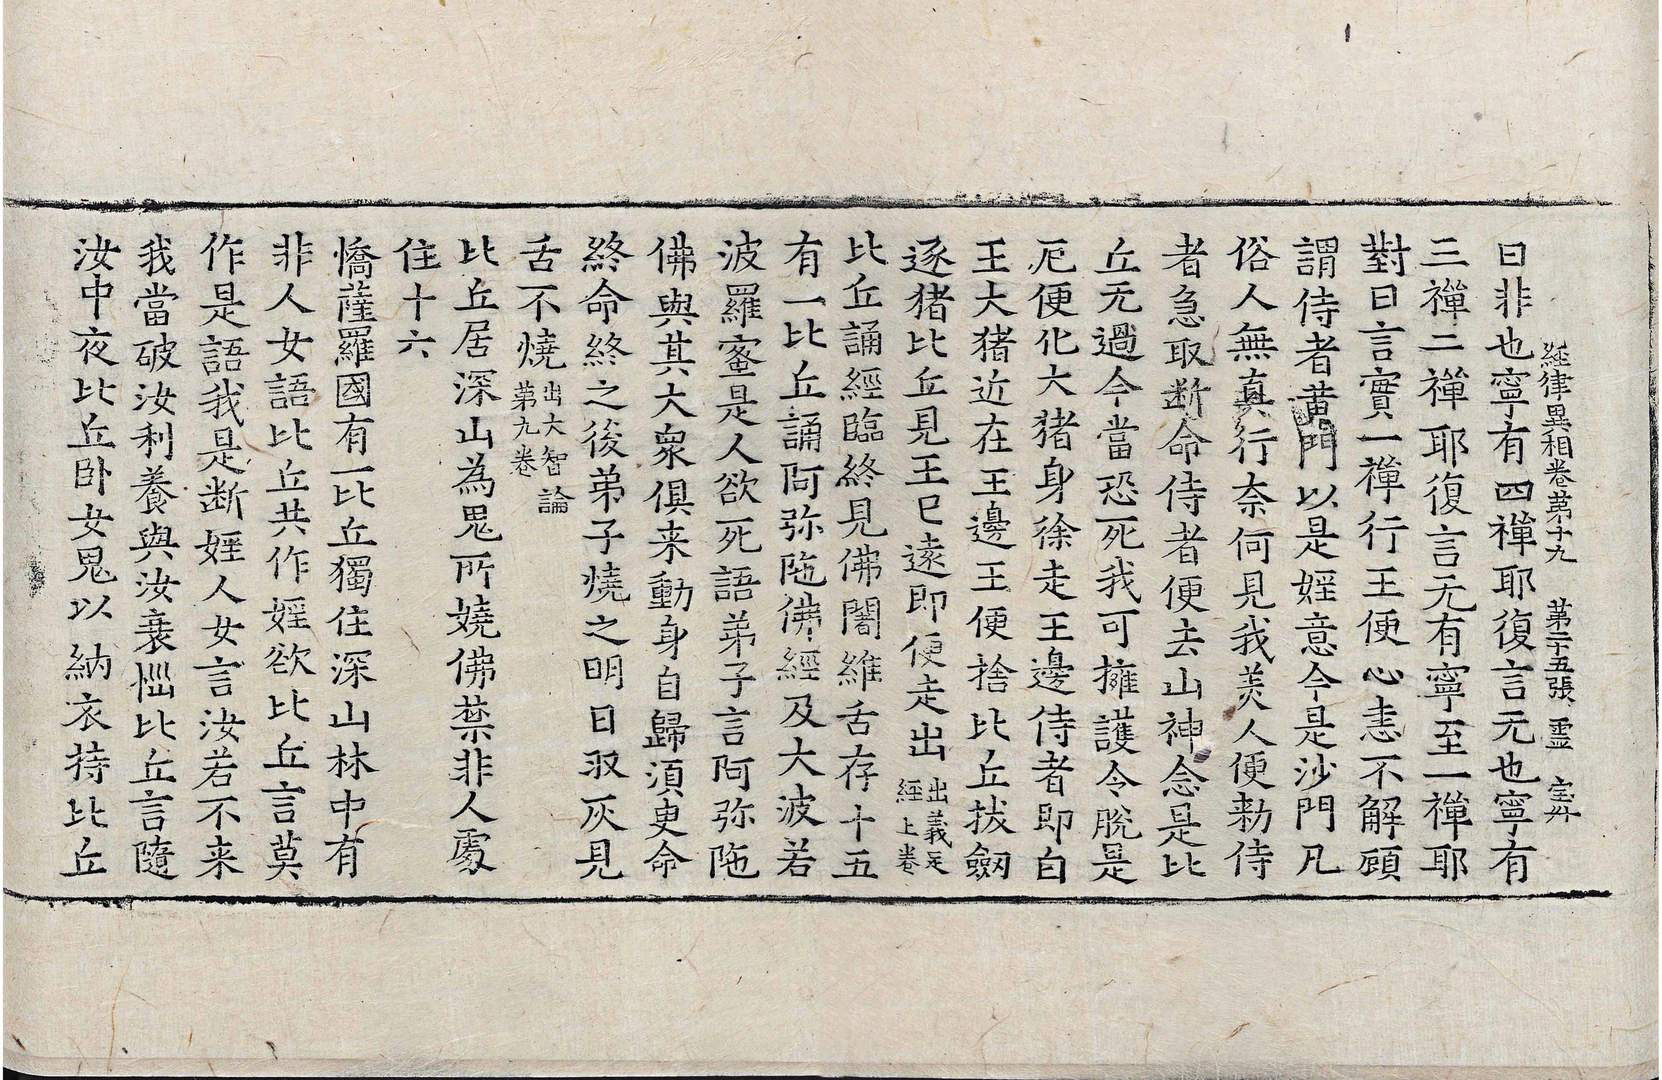 經律異相卷第十九　第二十五張　靈
曰非也寧有四禪耶復言无也寧有
三禪二禪耶復言无有寧至一禪耶
對曰言實一禪行王便心恚不解顧
謂侍者黄門以是婬意今是沙門凡
俗人無真行奈何見我美人便勑侍
者急取断命侍者便去山神念是比
丘无過今當恐死我可擁護令脫是
厄便化大猪身徐走王邊侍者即白
王大猪近在王邊王便捨比丘拔劒
逐猪比丘見王已遠即便走出出義足經上卷
比丘誦經臨終見佛闍維舌存十五
有一比丘誦阿弥陁佛經及大波若
波羅蜜是人欲死語弟子言阿弥陁
佛與其大衆俱来動身自歸須臾命
終命終之後弟子燒之明日㪽灰見
舌不燒出大智論第九卷
比丘居深山為鬼所嬈佛禁非人處
住十六
憍薩羅國有一比丘獨住深山林中有
非人女語比丘共作婬欲比丘言莫
作是語我是断婬人女言汝若不来
我當破汝利養與汝衰惱比丘言隨
汝中夜比丘卧女鬼以納衣持比丘